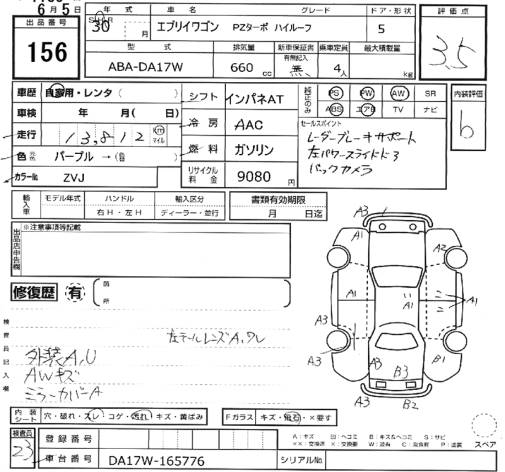 6月5日
出品番号
156
年式
30 月
車名
エブリイワゴン
グレード
PZターボ ハイルーフ
ドア・形状
5
評価点
3.5
型式
ABA-DA17W
排気量
660 cc
新車保証書
有無記入
無
乗車定員
4人
最大積載量
kg
車歴 自家用・レンタ( )
車検 年 月( 日)
走行 13,812 km マイル
色 元色 パープル→(色 )
カラーNo ZVJ
シフト インパネAT
冷房 AAC
燃料 ガソリン
リサイクル料金 9080円
純正のみ
PS PW AW SR
ABS エアB TV ナビ
セールスポイント
レーダーブレーキサポート
左パワースライドドア
バックカメラ
内装評価
b
輸入車
モデル年式 ハンドル 輸入区分
右H・左H ディーラー・並行
書類有効期限
月 日迄
出品店申告欄
※注意事項等記載
修復歴 有
箇所
検査員記入欄
左テールレンズA,ワレ
外装A,U
AWキズ
ミラーカバーA
A3
A1
A2
A1
A1
A1
A3
A3
A3
A3
B3
B1
A3
B2
内装シート 穴・破れ・スレ・コゲ・汚れ・キズ・黄ばみ
Fガラス キズ・飛石・×要す
検査員
23
登録番号
車台番号 DA17W-165776
シリアルNo.
A:キズ U:ヘコミ B:キズ&ヘコミ S:サビ
スペア